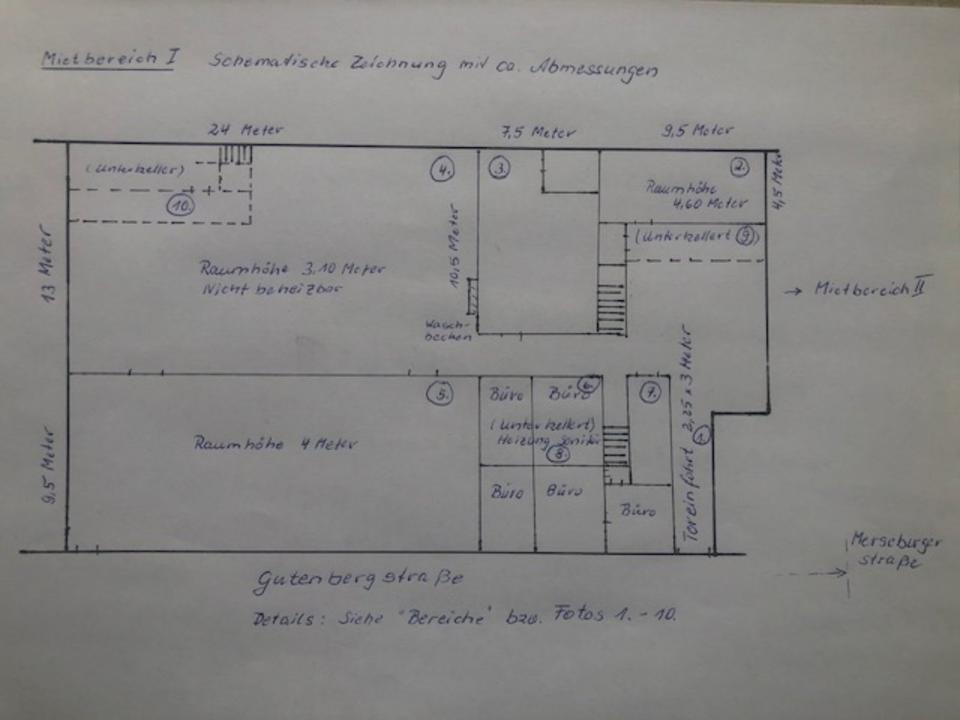 Mietbereich I Schematische Zeichnung mit ca. Abmessungen
24 Meter
7,5 Meter
9,5 Meter
(Unterkeller)
10.
4.
3.
2.
Raumhöhe
4,60 Meter
4,5 Meter
(Unterkellert 9)
13 Meter
10,5 Meter
Raumhöhe 3,10 Meter
Nicht beheizbar
→ Mietbereich II
Wasch-
becken
5.
Büro
Büro
6.
7.
(Unterkellert)
Heizung Sanitär
8.
Raumhöhe 4 Meter
9,5 Meter
Büro
Büro
Büro
Toreinfahrt 2,25 x 3 Meter
1.
Merseburger
straße
Gutenbergstraße
Details: Siehe "Bereiche" bzw. Fotos 1. - 10.